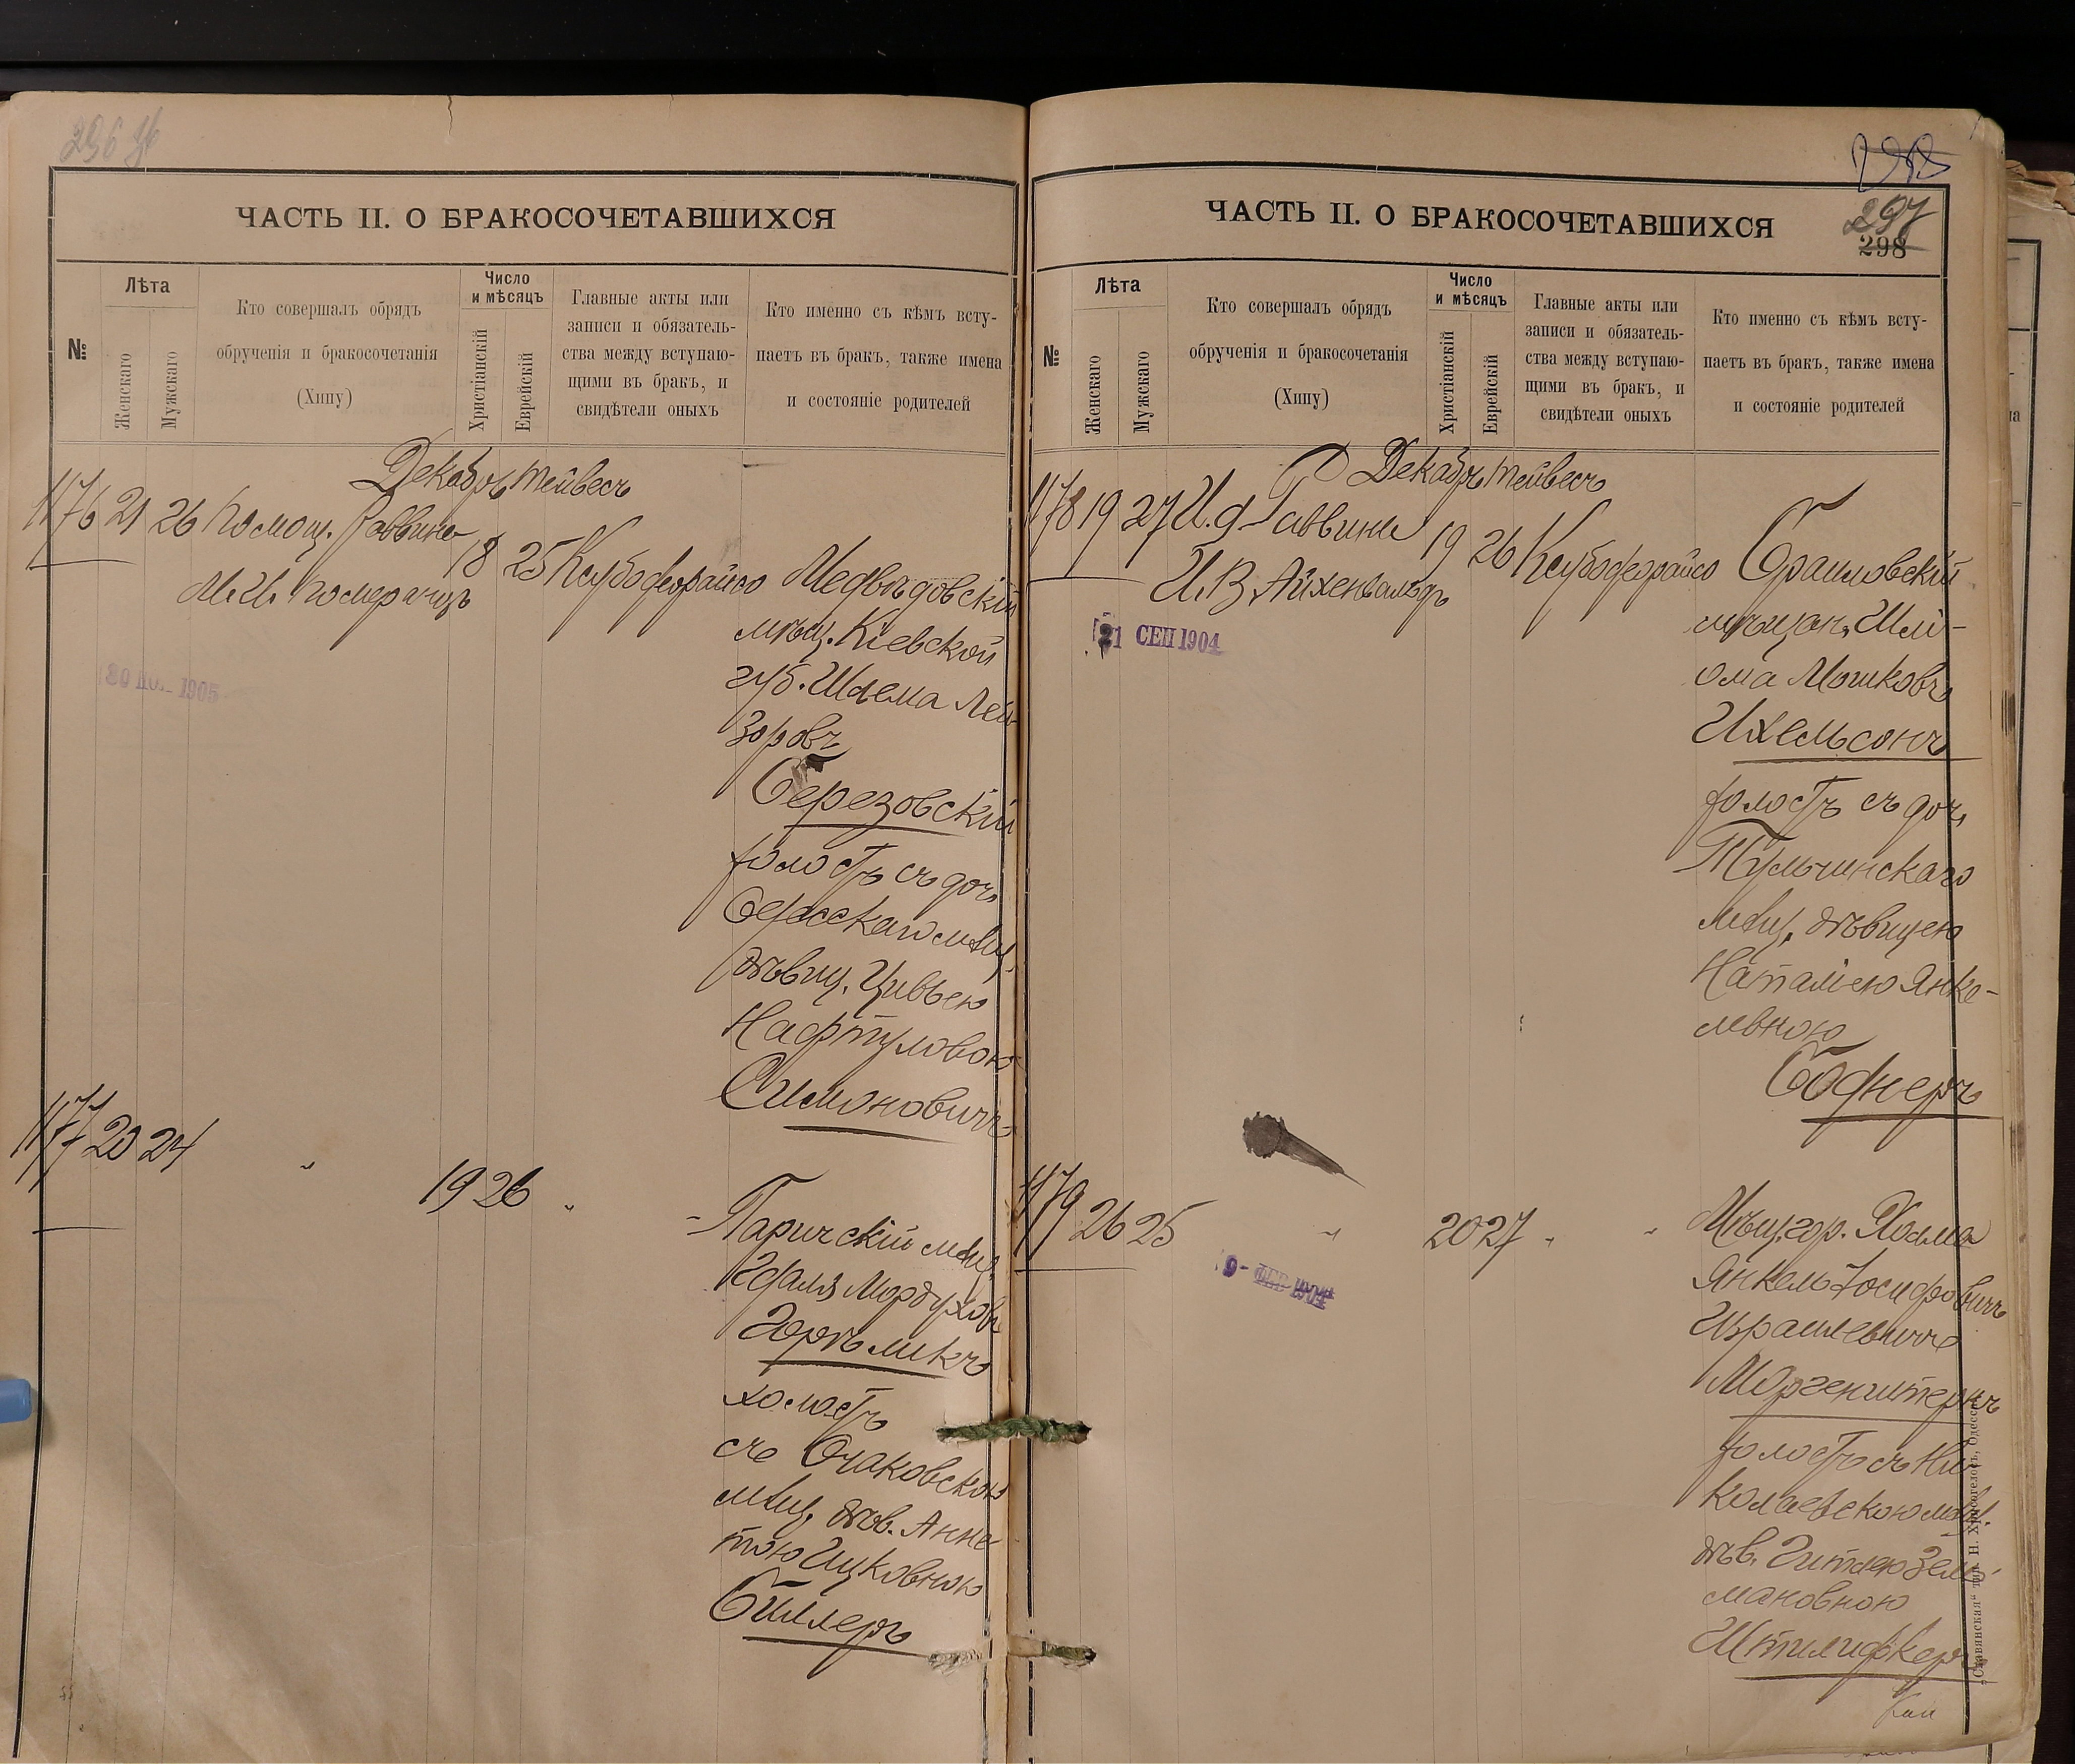 ЧАСТЬ II. О БРАКОСОЧЕТАВШИХСЯ
№
Лѣта
Женскаго
Мужскаго
Кто совершалъ обрядъ
обрученія и бракосочетанія
(Хипу)
Число
и мѣсяцъ
Христіанскій
Еврейскій
Главные акты или
записи и обязатель-
ства между вступаю-
щими въ бракъ, и
свидѣтели оныхъ
Кто именно съ кѣмъ всту-
паетъ въ бракъ, также имена
и состояніе родителей
Декабрь Тейвесъ
1176 21 26 Помощ. Раввина 18 25
М. И. Померанцъ
Медвѣдовскій
мѣщ. Кіевской
губ. Шлема Лей-
зоровъ
Березовскій
холостъ съ доч.
Одесскаго мѣщ.
дѣвиц. Цивьею
Нафтуловою
Симоновичъ
1177 20 24 " 19 26 " -
Паричскій мѣщ.
Гдаля Мордуховъ
Горѣликъ
холостъ
съ Очаковскою
мѣщ. дѣв. Анне
тою Ицковною
Биллеръ
ЧАСТЬ II. О БРАКОСОЧЕТАВШИХСЯ
297
298
№
Лѣта
Женскаго
Мужскаго
Кто совершалъ обрядъ
обрученія и бракосочетанія
(Хипу)
Число
и мѣсяцъ
Христіанскій
Еврейскій
Главные акты или
записи и обязатель-
ства между вступаю-
щими въ бракъ, и
свидѣтели оныхъ
Кто именно съ кѣмъ всту-
паетъ въ бракъ, также имена
и состояніе родителей
Декабрь Тейвесъ
1178 19 27 И. д. Раввина 19 26
И. В. Айхенвальдъ
21 СЕП 1904
Браиловскій
мѣщан. Шлі-
ома Мошковъ
Ихельсонъ
холостъ съ доч.
Тульчинскаго
мѣщ. дѣвицею
Наталіею Янке-
левною
Боднеръ
1179 26 25 " 20 27 " "
Мѣщ. гор. Холма
Янкель Іосифовичъ
Израилевичъ
Моргенштернъ
холостъ съ Ни-
колаевскою мѣщ.
дѣв. Гитлею Зель-
мановною
Штилифкеръ